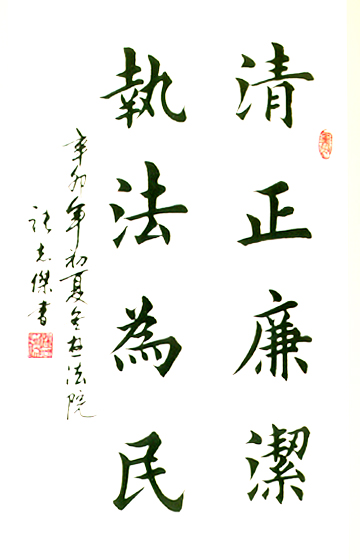 清正廉潔
執法為民
辛卯年初夏
法院
志傑書